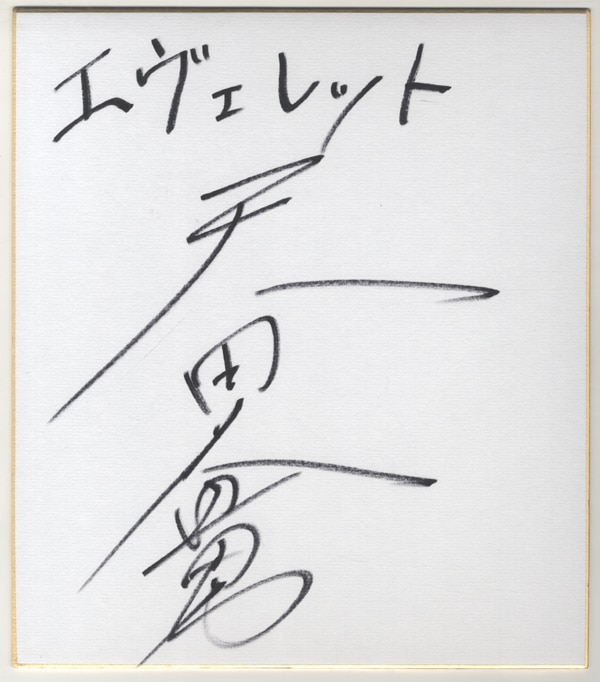 エヴェレット
天田益男